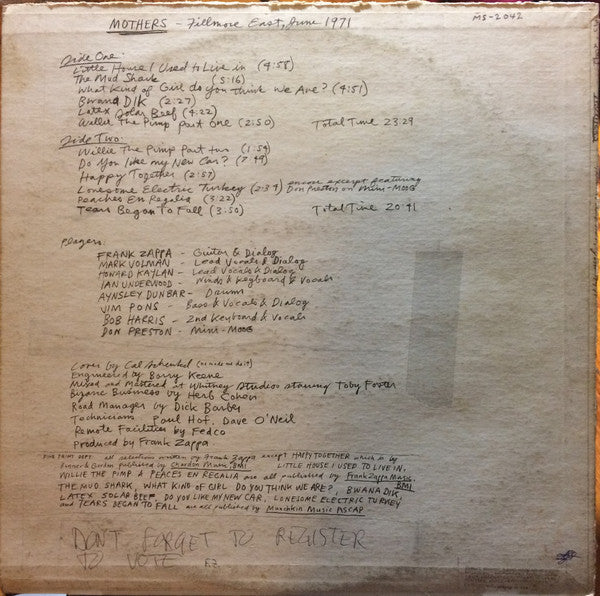 MOTHERS - Fillmore East, June 1971
MS-2042
Side One:
Little House I Used to Live in (4:58)
The Mud Shark (5:16)
What Kind of Girl do you think We Are? (4:51)
Bwana DIK (2:27)
Latex Solar Beef (4:22)
Willie The Pimp Part One (2:50) Total Time 23:29
Side Two:
Willie The Pimp Part two (1:54)
Do You like my New Car? (7:49)
Happy Together (2:57)
Lonesome Electric Turkey (2:34) encore excerpt featuring
Don Preston on Mini-MOOG
Peaches En Regalia (3:22)
Tears Began To Fall (3:50) Total Time 20:41
Players:
FRANK ZAPPA - Guitar & Dialog
MARK VOLMAN - Lead Vocals & Dialog
HOWARD KAYLAN - Lead Vocals & Dialog
IAN UNDERWOOD - Winds & Keyboard & Vocals
AYNSLEY DUNBAR - Drums
JIM PONS - Bass & Vocals & Dialog
BOB HARRIS - 2nd Keyboard & Vocals
DON PRESTON - Mini-MOOG
Cover by Cal Schenkel (he made me do it)
Engineered by Barry Keene
Mixed and Mastered at Whitney Studios starring Toby Foster
Bizarre Business by Herb Cohen
Road Manager by Dick Barber
Technicians: Paul Hof, Dave O'Neil
Remote Facilities by Fedco
Produced by Frank Zappa
FINE PRINT DEPT: all selections written by Frank Zappa except HAPPY TOGETHER which is by
Bonner & Gordon published by Chardon Music, BMI LITTLE HOUSE I USED TO LIVE IN,
WILLIE THE PIMP & PEACES EN REGALIA are all published by Frank Zappa Music, BMI
THE MUD SHARK, WHAT KIND OF GIRL DO YOU THINK WE ARE?, BWANA DIK,
LATEX SOLAR BEEF, DO YOU LIKE MY NEW CAR, LONESOME ELECTRIC TURKEY
and TEARS BEGAN TO FALL are all published by Munchkin Music ASCAP
DON'T FORGET TO REGISTER
TO VOTE FZ